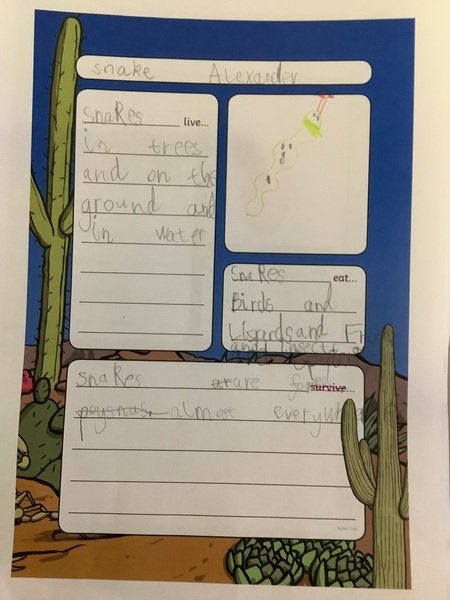 snake Alexander
snaRes live...
in trees
and on the
ground and
in water
SnaRes eat...
Birds and
Ligards and Fr
and insects
snaRes are found survive...
almost everywhe